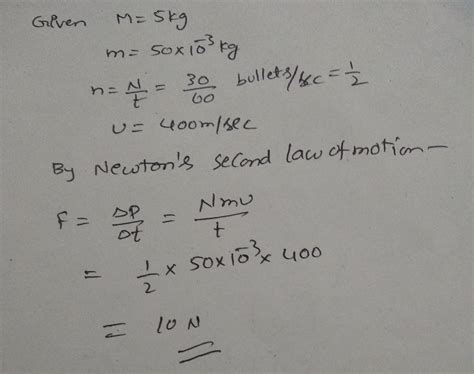 Given M = 5kg
m = 50×10⁻³ kg
n = N/t = 30/60 bullets/sec = 1/2
υ = 400m/sec
By Newton's second law of motion —
F = ΔP/Δt = Nmυ/t
= 1/2 × 50×10⁻³ × 400
= 10 N